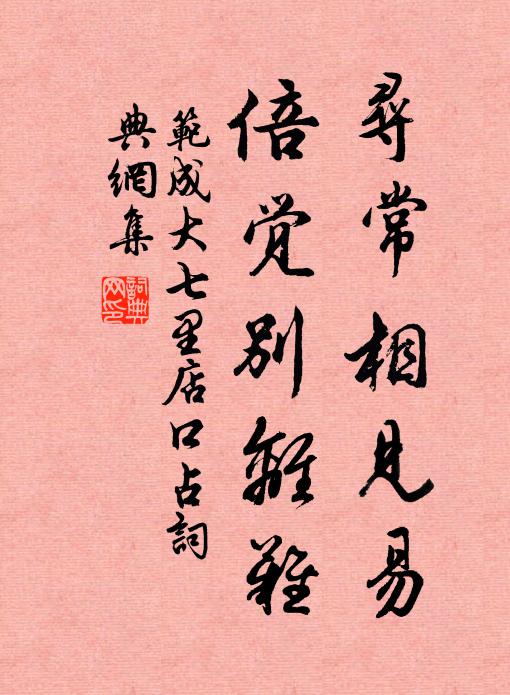 尋常相見易
倍覚別離難
範成大七里店口占詞
典網集
詞典
网印